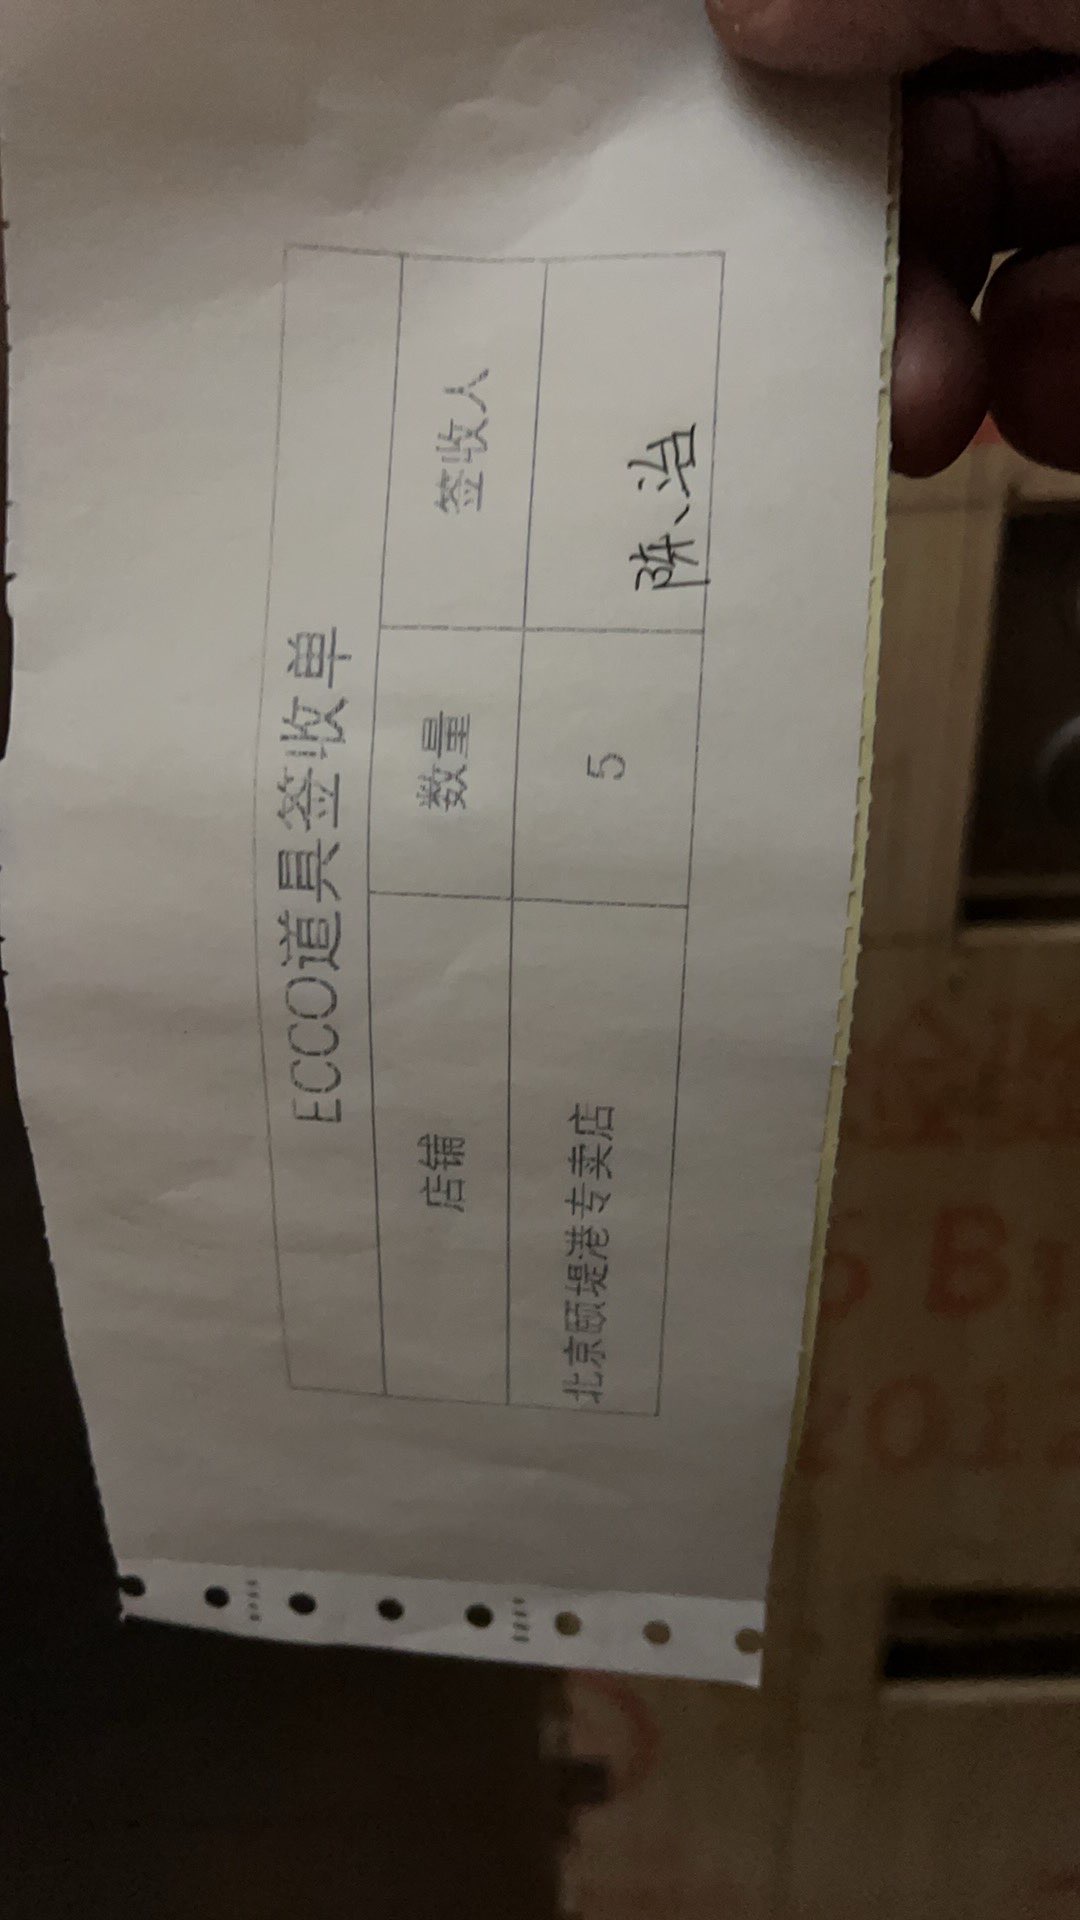 ECCO道具签收单
店铺 数量 签收人
北京颐堤港专卖店 5 陈、治